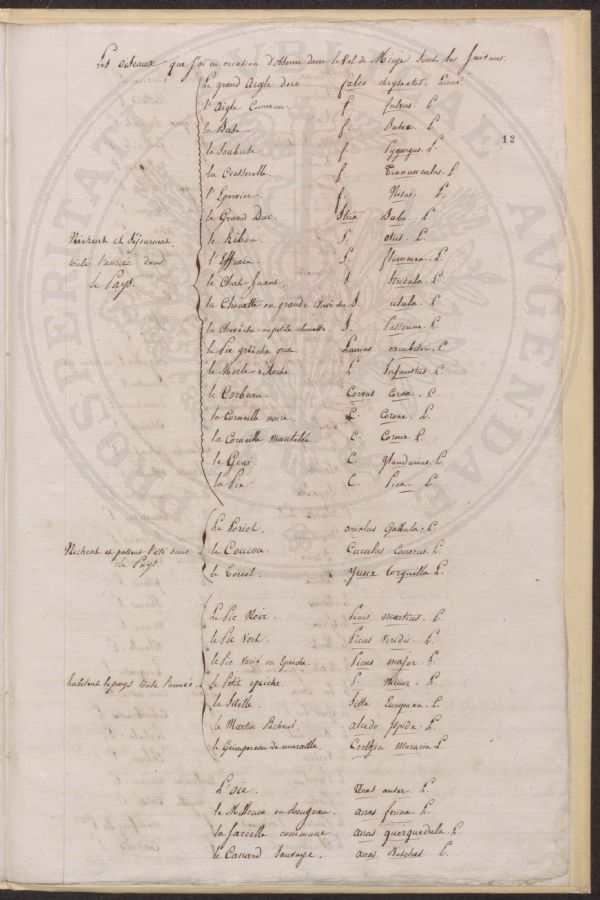 Les oiseaux que j'ai eu occasion d'observer dans le Val de Miege sont les suivans:
12
Le grand Aigle doré falco chrysaetos. Linné.
l'Aigle Commun. f. fulvus. L.
la Buse. f. Buteo. L.
la Soubuse. f. Pygargus. L.
la Cresserelle. f. Tinnunculus. L.
l'Epervier. f. Nisus. L.
le Grand Duc. Strix Bubo. L.
Nichent et Séjournent
toute l'année dans
le Pays.
le Hibou. S. otus. L.
l'Effraie. S. flammea. L.
le Chat-huant. S. Stridula. L.
la Chouette ou grande Chevêche S. ulula. L.
la Chevêche ou petite chouette S. Passerina. L.
la Pie grièche grise. Lanius excubitor. L.
le Merle de Roche L. Infaustus. L.
le Corbeau. Corvus Corax. L.
la Corneille noire. C. Corone. L.
la Corneille mantelée. C. Cornix L.
le Geai. C. glandarius. L.
la Pie C. Pica. L.
Nichent et passent l'été dans
le Pays.
Le Loriot. oriolus Galbula. L.
le Coucou. Cuculus Canorus. L.
le Torcol. Yunx torquilla L.
habitent le pays toute l'année.
Le Pic Noir. Picus martius. L.
le Pic Vert. Picus Viridis. L.
le Pic varié ou Epeiche. Picus major. L.
le Petit epeiche. P. minor. L.
la Sitelle. Sitta Europaea. L.
le Martin Pecheur. alcedo Ispida. L.
le Grimpereau de muraille. Certhia Muraria L.
L'oie. Anas anser. L.
le Millouin ou Rougeau. anas ferina. L.
la Sarcelle commune. anas querquedula. L.
le Canard Sauvage. anas Boschas L.
PROSPERITATI AGENDAE